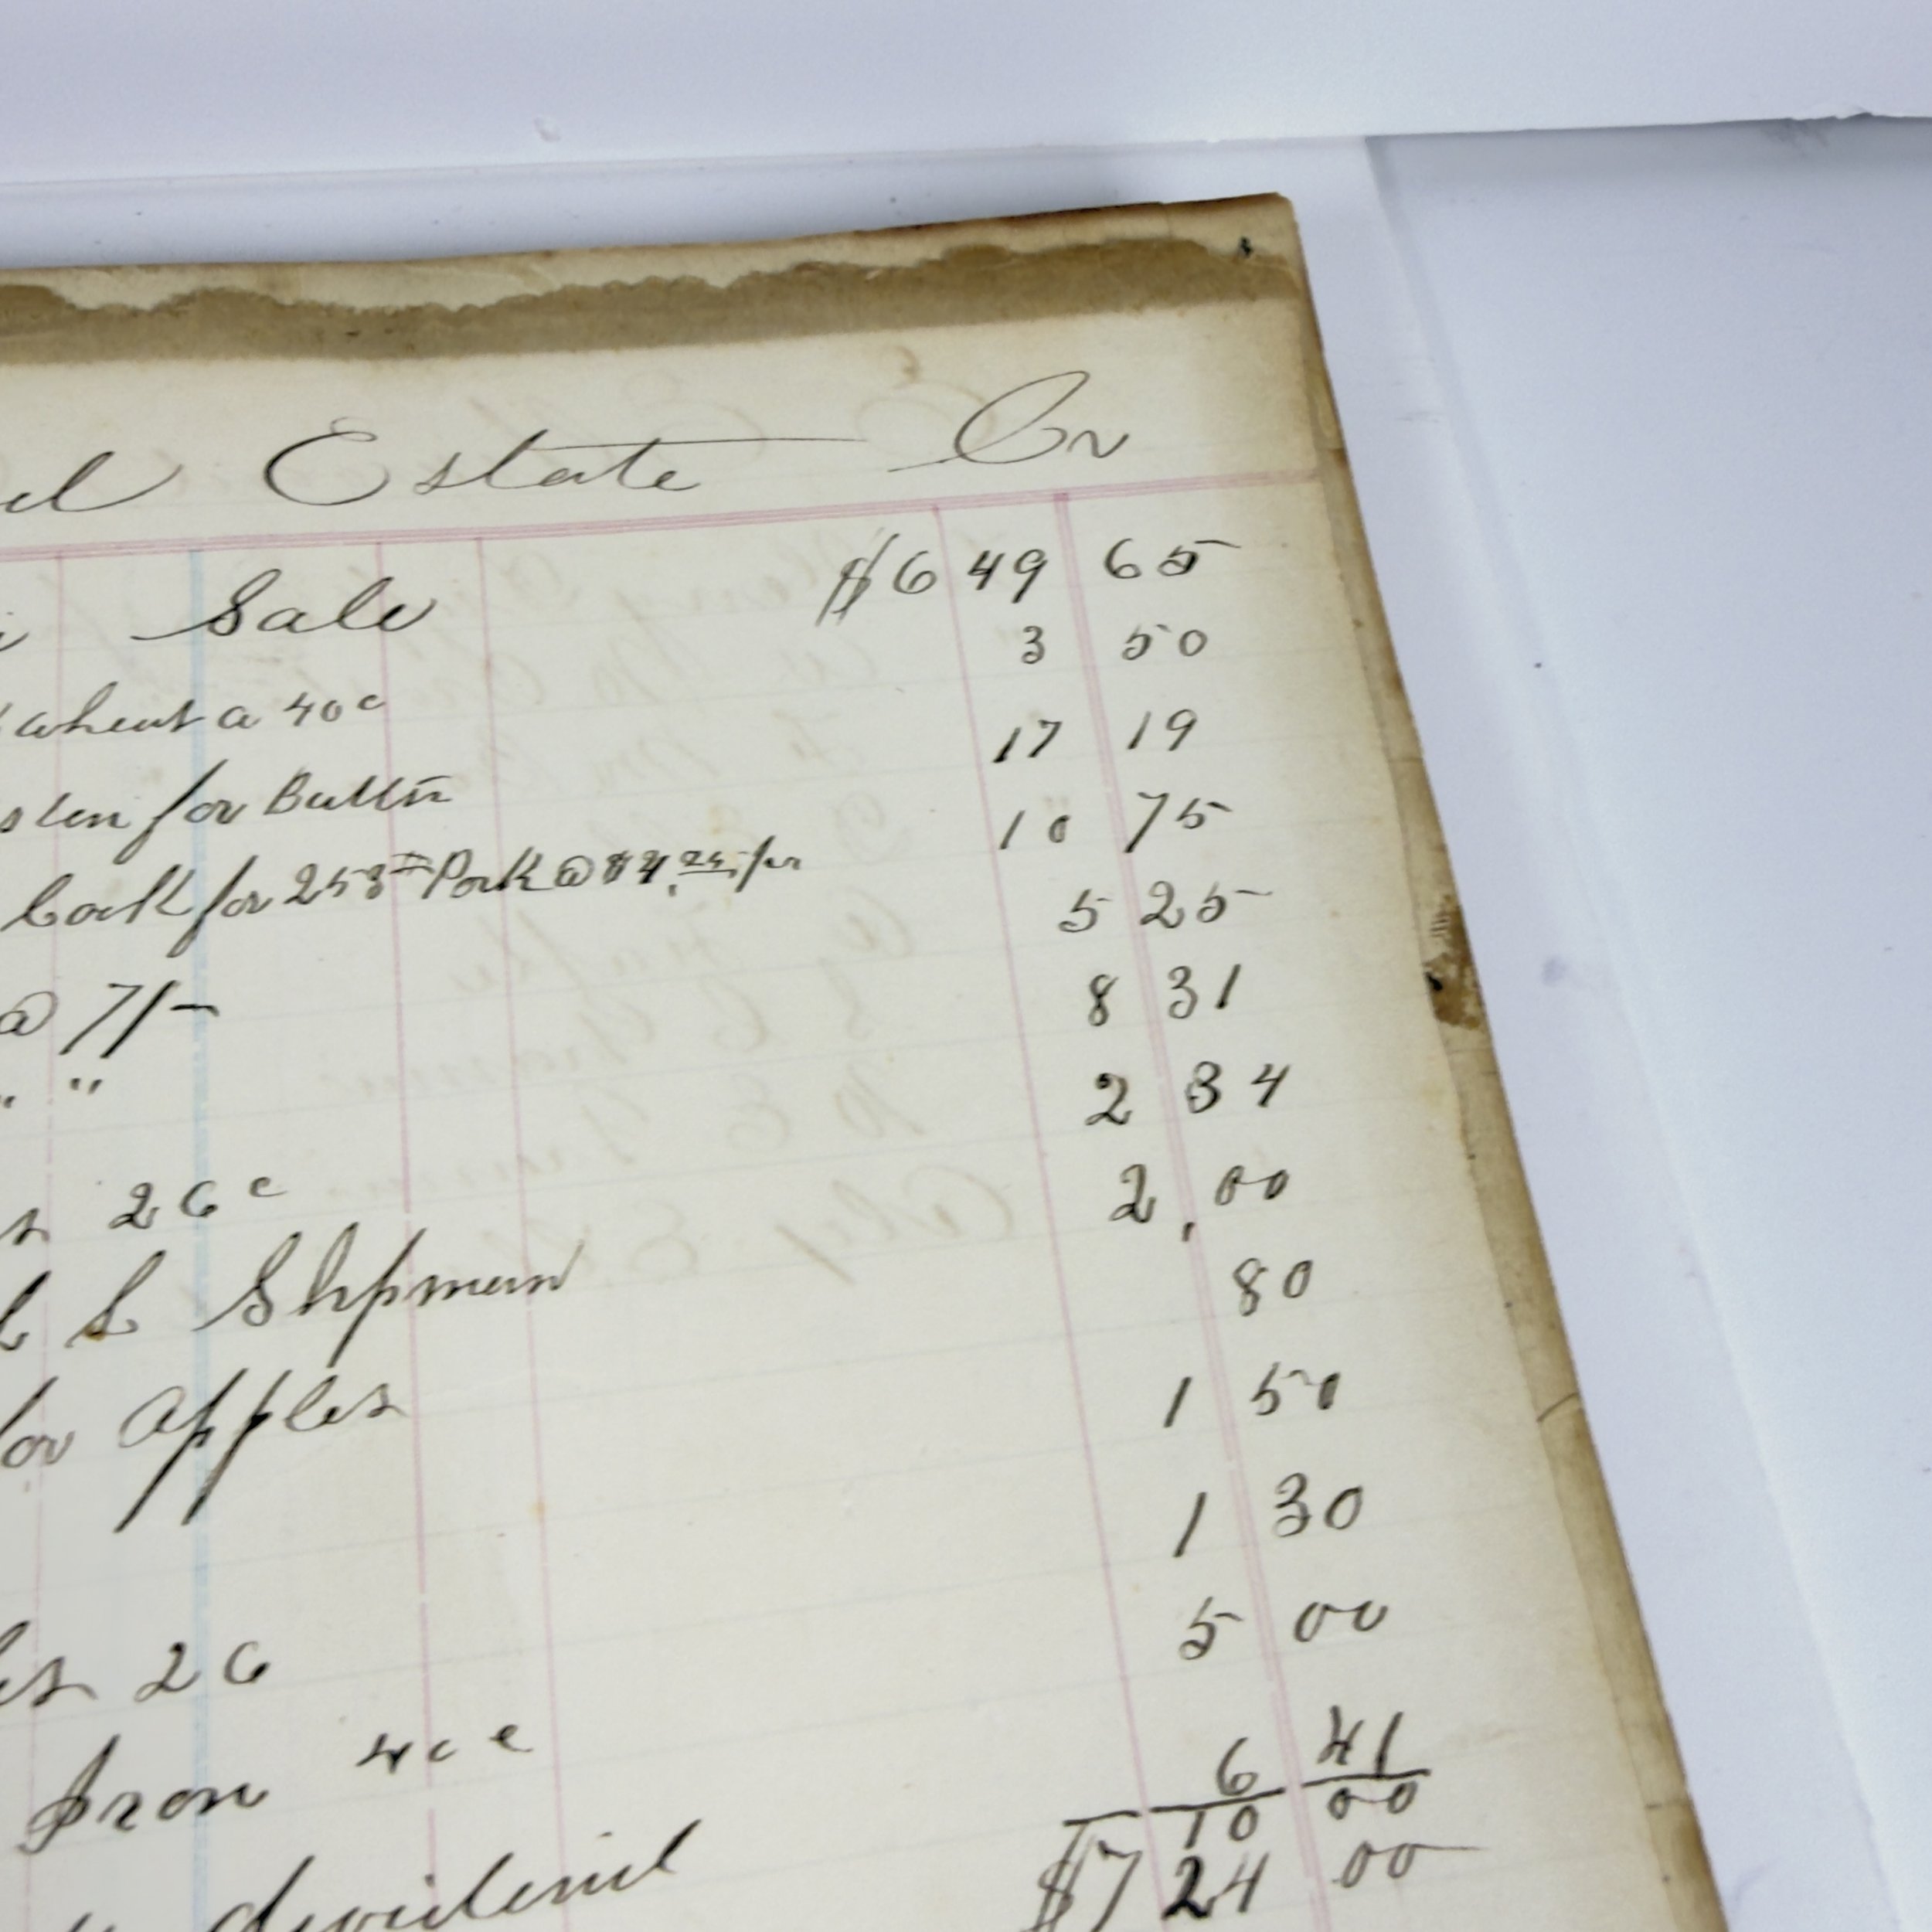 Estate Cr
Sale $649 65
wheat a 40c 3 50
for Butter 17 19
for 258 Pork @ $4.25 per 10 75
@ 7/- 5 25
" " 8 31
2 34
26c 2,00
L S Shipman 80
for Apples 1 50
1 30
5 00
26 6 41
Iron 40c 10 00
dividend $724 00